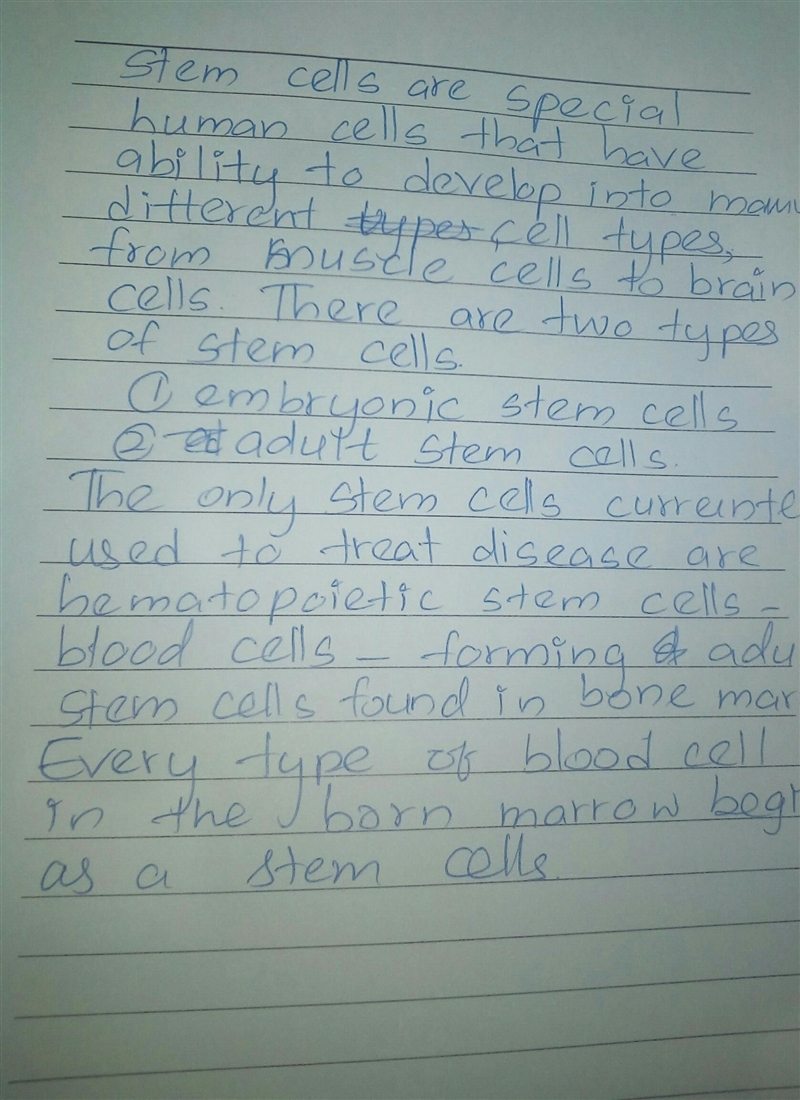 Stem cells are special
human cells that have
ability to develop into many
different types cell types,
from muscle cells to brain
cells. There are two types
of stem cells.
① embryonic stem cells
② adult stem cells.
The only stem cells currente
used to treat disease are
hematopoietic stem cells -
blood cells - forming adu
stem cells found in bone mar
Every type of blood cell
in the born marrow begi
as a stem cells.